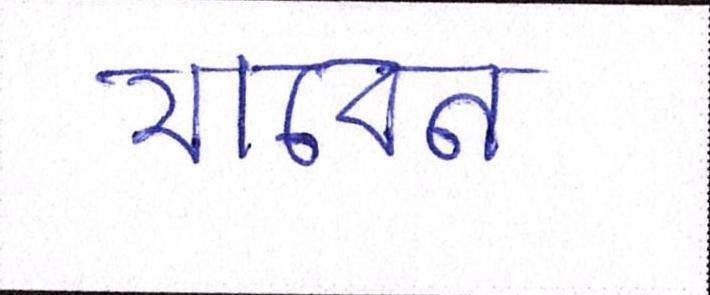 যাবেন